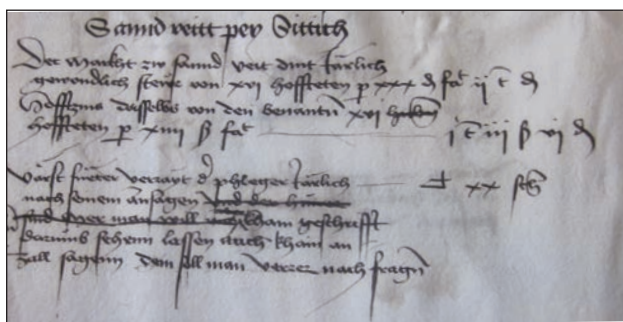 Sannd veitt pey Vittich
Der Markht zw sannd veit dint järlich
gewondlich stewr von xvi hoffsteten p xxx đ fac̄ ii c đ
Hoffzins daselbs von den benantn xvi
hoffsteten p xiiii ß fac̄ i c iii ß vi đ
verrayt d phleger järlich xx
nach seinem ansagen vnd der
vnd aber man will kham geschrifft
darumb sehenn lassen auch khain an
zall sagenn dem soll man verrer nach fragn